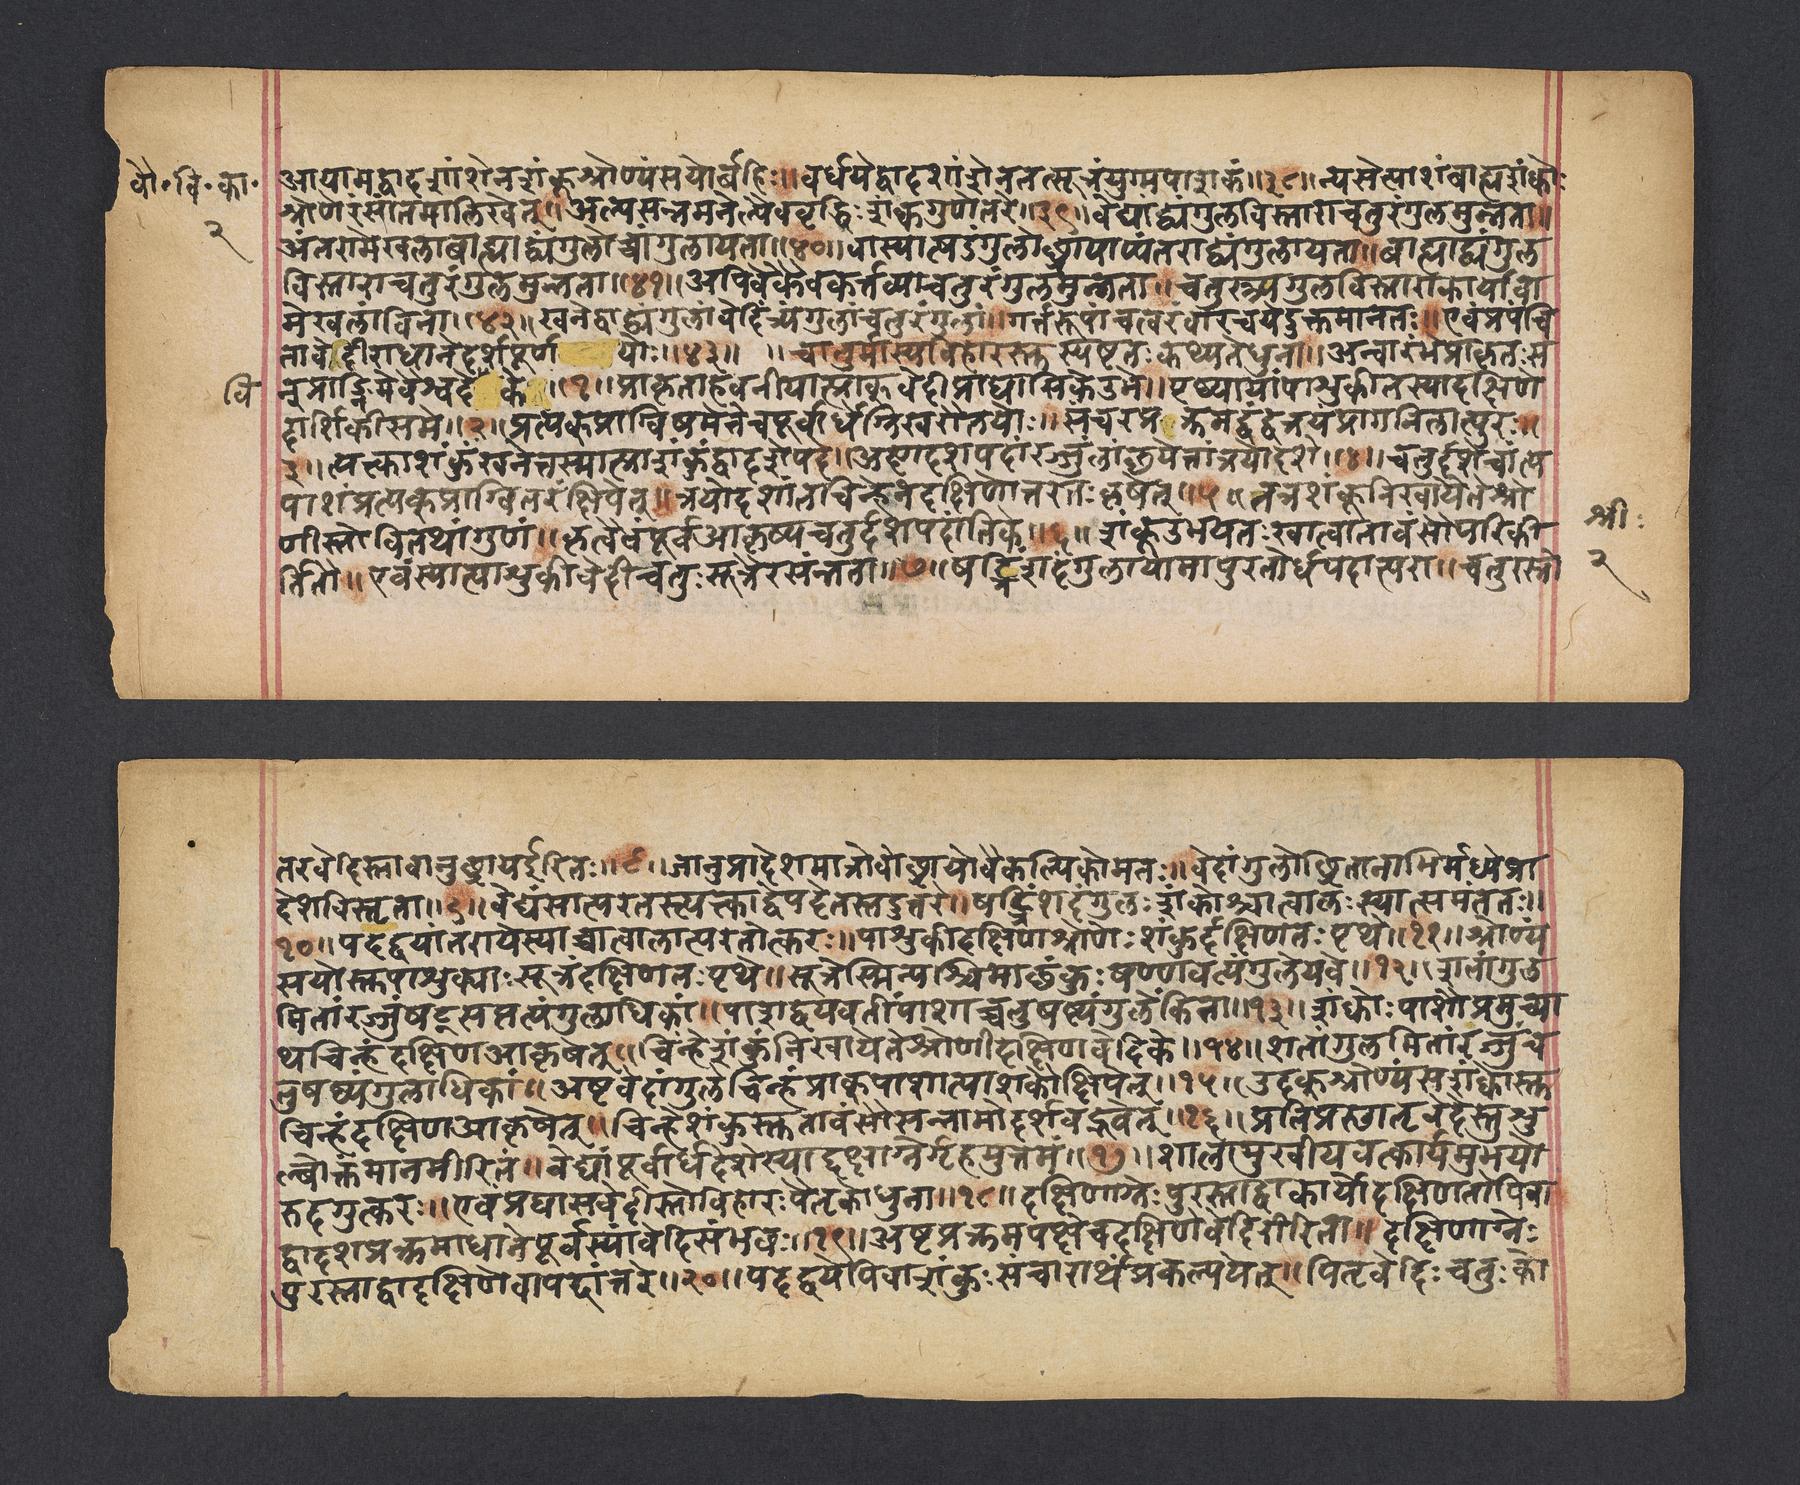 बौ॰ वि॰ का॰
२
आयामद्वादशांशेनशंकूश्रोण्यंसयोर्बहिः॥वर्धयेद्वादशांशेनतत्सूत्रंयुग्मपाशकं॥३८॥न्यसेत्पाशंबाह्यशंक्वोः
श्रोणेरंसांतमालिखेत्॥अत्यसन्नमनेत्येववृद्धिः शंक्वगुणेतरे॥३९॥वेद्यांद्व्यंगुलविस्ताराचतुरंगुलमुन्नता॥
अंतरामेखलाबाह्याद्व्यंगुलोच्चांगुलायता॥४०॥ वास्यात्षडंगुलोच्छ्रायाप्यंतराद्व्यंगुलायता॥बाह्याद्व्यंगुल
विस्ताराचतुरंगुलमुन्नता॥४१॥अपिवैकैवकर्त्तव्याचतुरंगुलमुन्नता॥चतुस्त्र्यंगुलविस्ताराकार्यावा
मेखलांविना॥४२॥खनेद्वाद्व्यंगुलांवेदिंत्र्यंगुलांचतुरंगुलां॥गर्त्तरूपांचत्वरंवारचयेदुक्तमानतः॥एवंप्रपंचि
तावेदीराधानेदर्शपूर्ण यो॥४३॥ ॥चातुर्मास्यविहारस्तु स्पष्टतः कथ्यतेधुना॥अन्वारंभप्राकृतःस
वि
नुप्राङ्निमेवैश्वदे के॥१॥प्राकृताहवनीयात्प्राक्‌वेदीप्राघासिकेउभे॥पृष्ठ्यायांपाशुकीतस्यादक्षिणे
दार्शिकीसमे॥२॥प्रत्यक्‌प्राग्विषमेनेचपूर्वार्धेग्निखरोतयोः॥संचरप्र क्रमद्वंद्वेत्रयंप्रागनिलात्पुरः॥
३॥त्यक्त्काशंकुंखनेत्तस्मात्प्राशंकुंद्वादशेपदे॥अष्टादशपदांरज्जुंतांकृपेत्तांत्रयोदशे॥४॥चतुर्दशेचांत्य
पाशंप्रत्यक्‌प्राग्वितरंक्षिपेत्॥त्रयोदशांतचिन्हेनदक्षिणोत्तरतः कृषेत्॥५॥तत्रशंकूनिखायेतेश्रो
श्रीः
णीस्तोवितथांगुणं॥कृत्वैवंपूर्वआकृष्यचतुर्दशपदांतिके॥६॥शंकूउभयतःखात्वातावंसोपरिकी
२
र्तितौ॥एवंस्यात्पाशुकीवेदीचतुः स्तनेरसंन्नता॥७॥षट्त्रिंशदंगुलायामापुरतोर्धपदात्परा॥चतुरस्रो
तरवेदिस्तावानुच्छ्रायईरितः॥८॥जानुप्रादेशमात्रोवोच्छ्रायोवैकल्पिकोमतः॥वेदांगुलोच्छ्रितानाभिर्मध्येप्रा
देशविस्तृता॥९॥वेद्यंसात्परतस्त्यक्त्काद्वेपदेतस्तदुत्तरे॥षट्त्रिंशदंगुलः शंकोश्चात्वालः स्यात्समंततः॥
१०॥पदद्वयांतरायेस्याच्चात्वालात्परतोत्करः॥पाशुकीदक्षिणाश्रोणेः शंकुर्दक्षिणतः पृथे॥११॥श्रोण्यं
सयोस्तुपाशुक्याः सूत्रंदक्षिणतः पृथे॥सूत्रेस्मिन्पश्चिमाच्छंकुः षण्णवत्यंगुलेयवे॥१२॥शतांगुल
मितांरज्जुंषट्सप्तत्यंगुलाधिकां॥पाशद्वयवतींपाशाच्चतुषष्ट्यंगुलेकिता॥१३॥शंक्वोः पाशौप्रमुच्या
थचिन्हंदक्षिणआकृषेत्॥चिन्हेशंकुंनिखायेतेश्रोणीदक्षिणवेदिके॥१४॥शतांगुलमितांरज्जुंच
तुषष्ट्यंगुलाधिकां॥अष्टवेदांगुलेचिन्हंप्राक्‌पाशात्पाशकौक्षिपेत्॥१५॥उदक्‌श्रोण्यंसशंक्वोस्तु
चिन्हंदक्षिणआकृषेत्॥चिन्हेशंकुस्तुतावंसोसन्नामोदर्शवद्भवेत्॥१६॥प्रतिप्रस्थातृवेदेस्तुशु
ल्बोक्तंमानमीरितं॥वेद्यांपूर्वार्धदेशेस्याद्दक्षाग्नेर्गृहमुत्तमं॥१७॥शालामुखीयवत्कार्यमुभयो
रुदगुत्करः॥एवंप्रघासवेदीस्तोविहारः पैतृकोधुना॥१८॥दक्षिणाग्नेः पुरस्ताद्वाकार्यादक्षिणतोपिवा
द्वादशप्रक्रमाधानेपूर्वस्यांवेदिसंभवः॥१९॥अष्टप्रक्रमपक्षेचदक्षिणेवेदिरीरिता॥दक्षिणाग्नेः
पुरस्ताद्वादक्षिणेवापदांत्तरे॥२०॥पदद्वयेपिवाशंकुः संचारार्थंप्रकल्पयेत्॥पितृवेदिः चतुः को